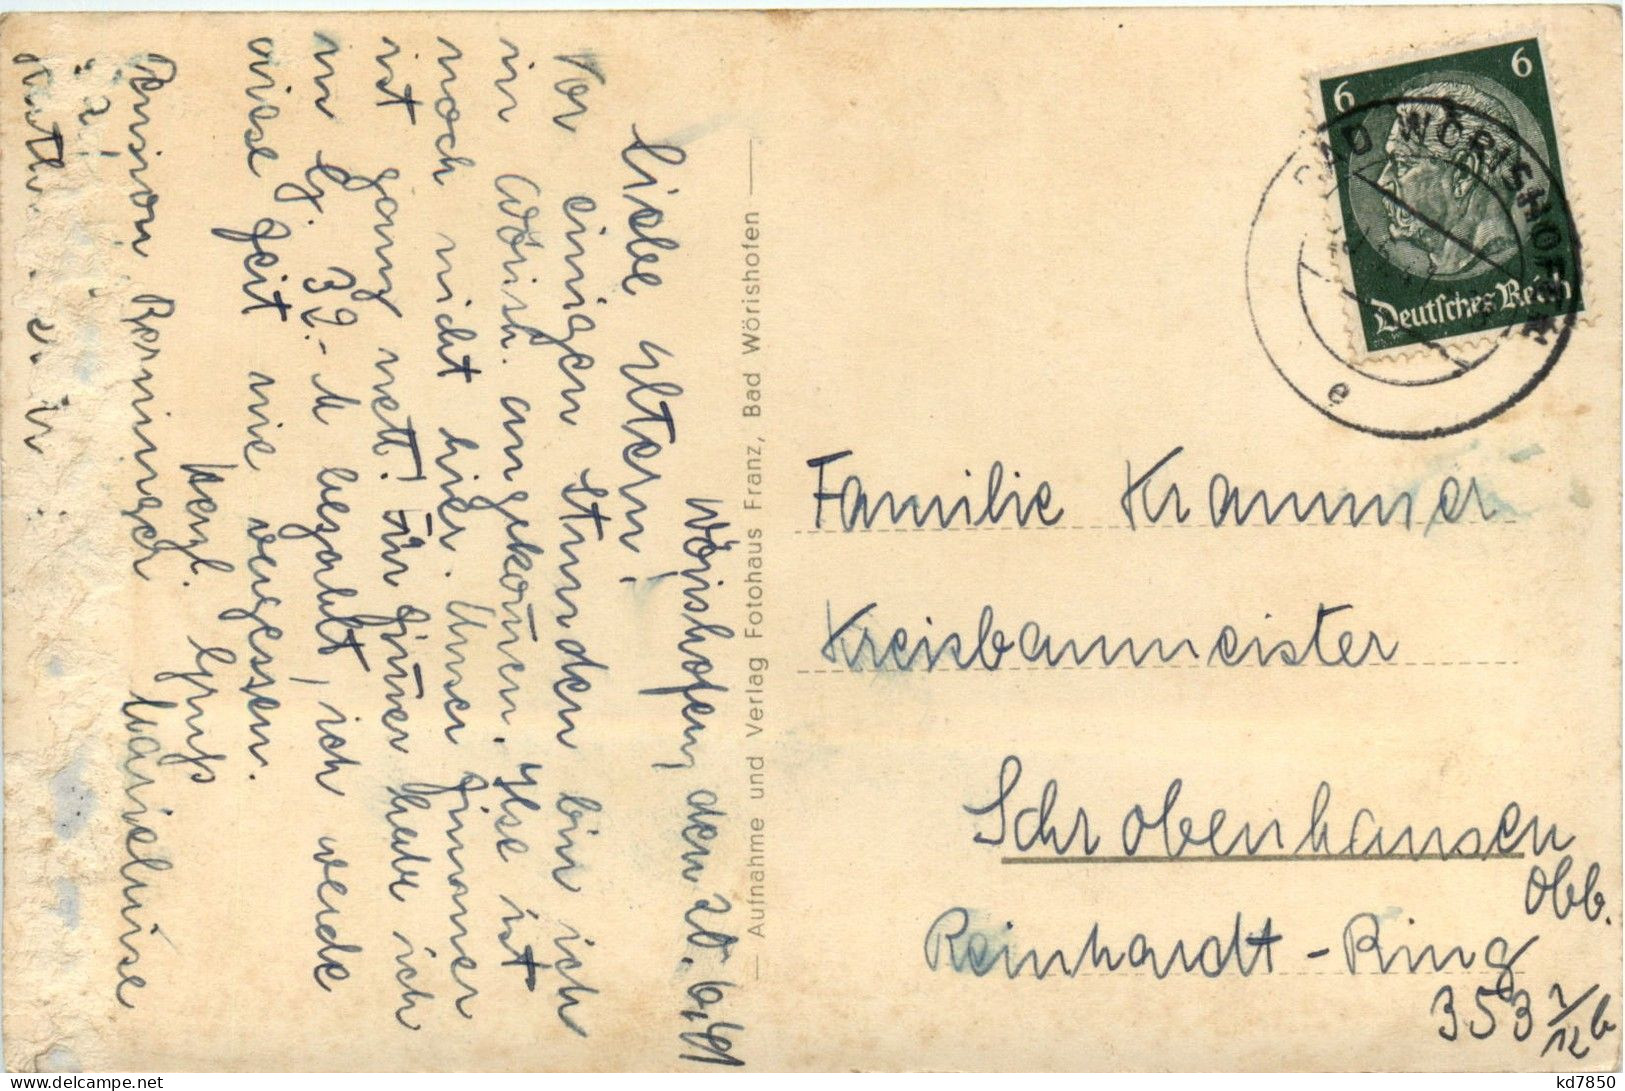 Wörishofen, den 20.6.41
Liebe Eltern!
Vor einigen Stunden bin ich
in Wörish. angekom̄en. Ilse ist
noch nicht hier. Unser Zimmer
ist ganz nett. Für Zim̄er habe ich
im Eg. 32.- M bezahlt, ich werde
diese Zeit nie vergessen.
Herzl. Gruß
Marieluise
Pension Berminger
Aufnahme und Verlag Fotohaus Franz, Bad Wörishofen
6 6
Deutsches Reich
BAD WÖRISHOFEN
e
Familie Krammer
Kreisbaumeister
Schrobenhausen
Obb.
Reinhardt-Ring
353 1/12 b
kd7850